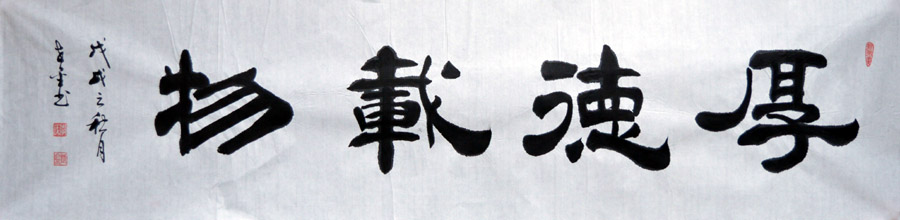 厚德載物
戊戌之秋月